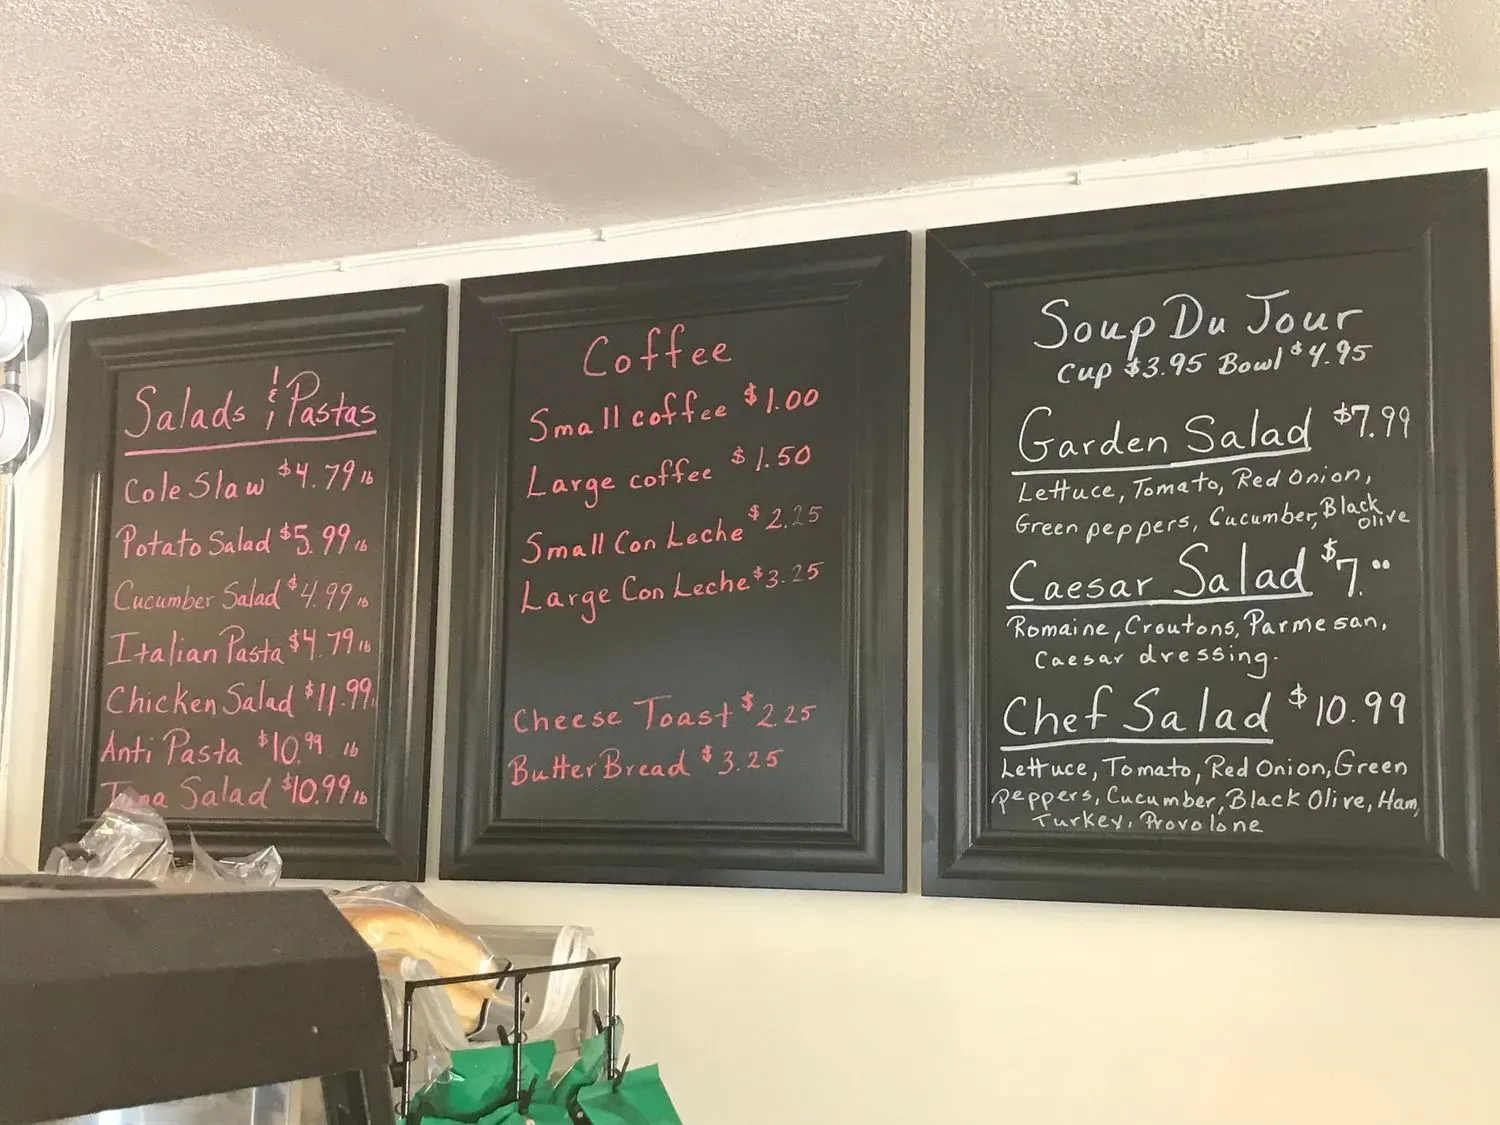 Salads & Pastas
Cole Slaw $4.79 lb
Potato Salad $5.99 lb
Cucumber Salad $4.99 lb
Italian Pasta $4.79 lb
Chicken Salad $11.99
Anti Pasta $10.99 lb
Tuna Salad $10.99 lb
Coffee
Small coffee $1.00
Large coffee $1.50
Small Con Leche $2.25
Large Con Leche $3.25
Cheese Toast $2.25
Butter Bread $3.25
Soup Du Jour
Cup $3.95 Bowl $4.95
Garden Salad $7.99
Lettuce, Tomato, Red Onion,
Green peppers, Cucumber, Black
Olive
Caesar Salad $7.00
Romaine, Croutons, Parmesan,
Caesar dressing.
Chef Salad $10.99
Lettuce, Tomato, Red Onion, Green
peppers, Cucumber, Black Olive, Ham,
Turkey, Provolone